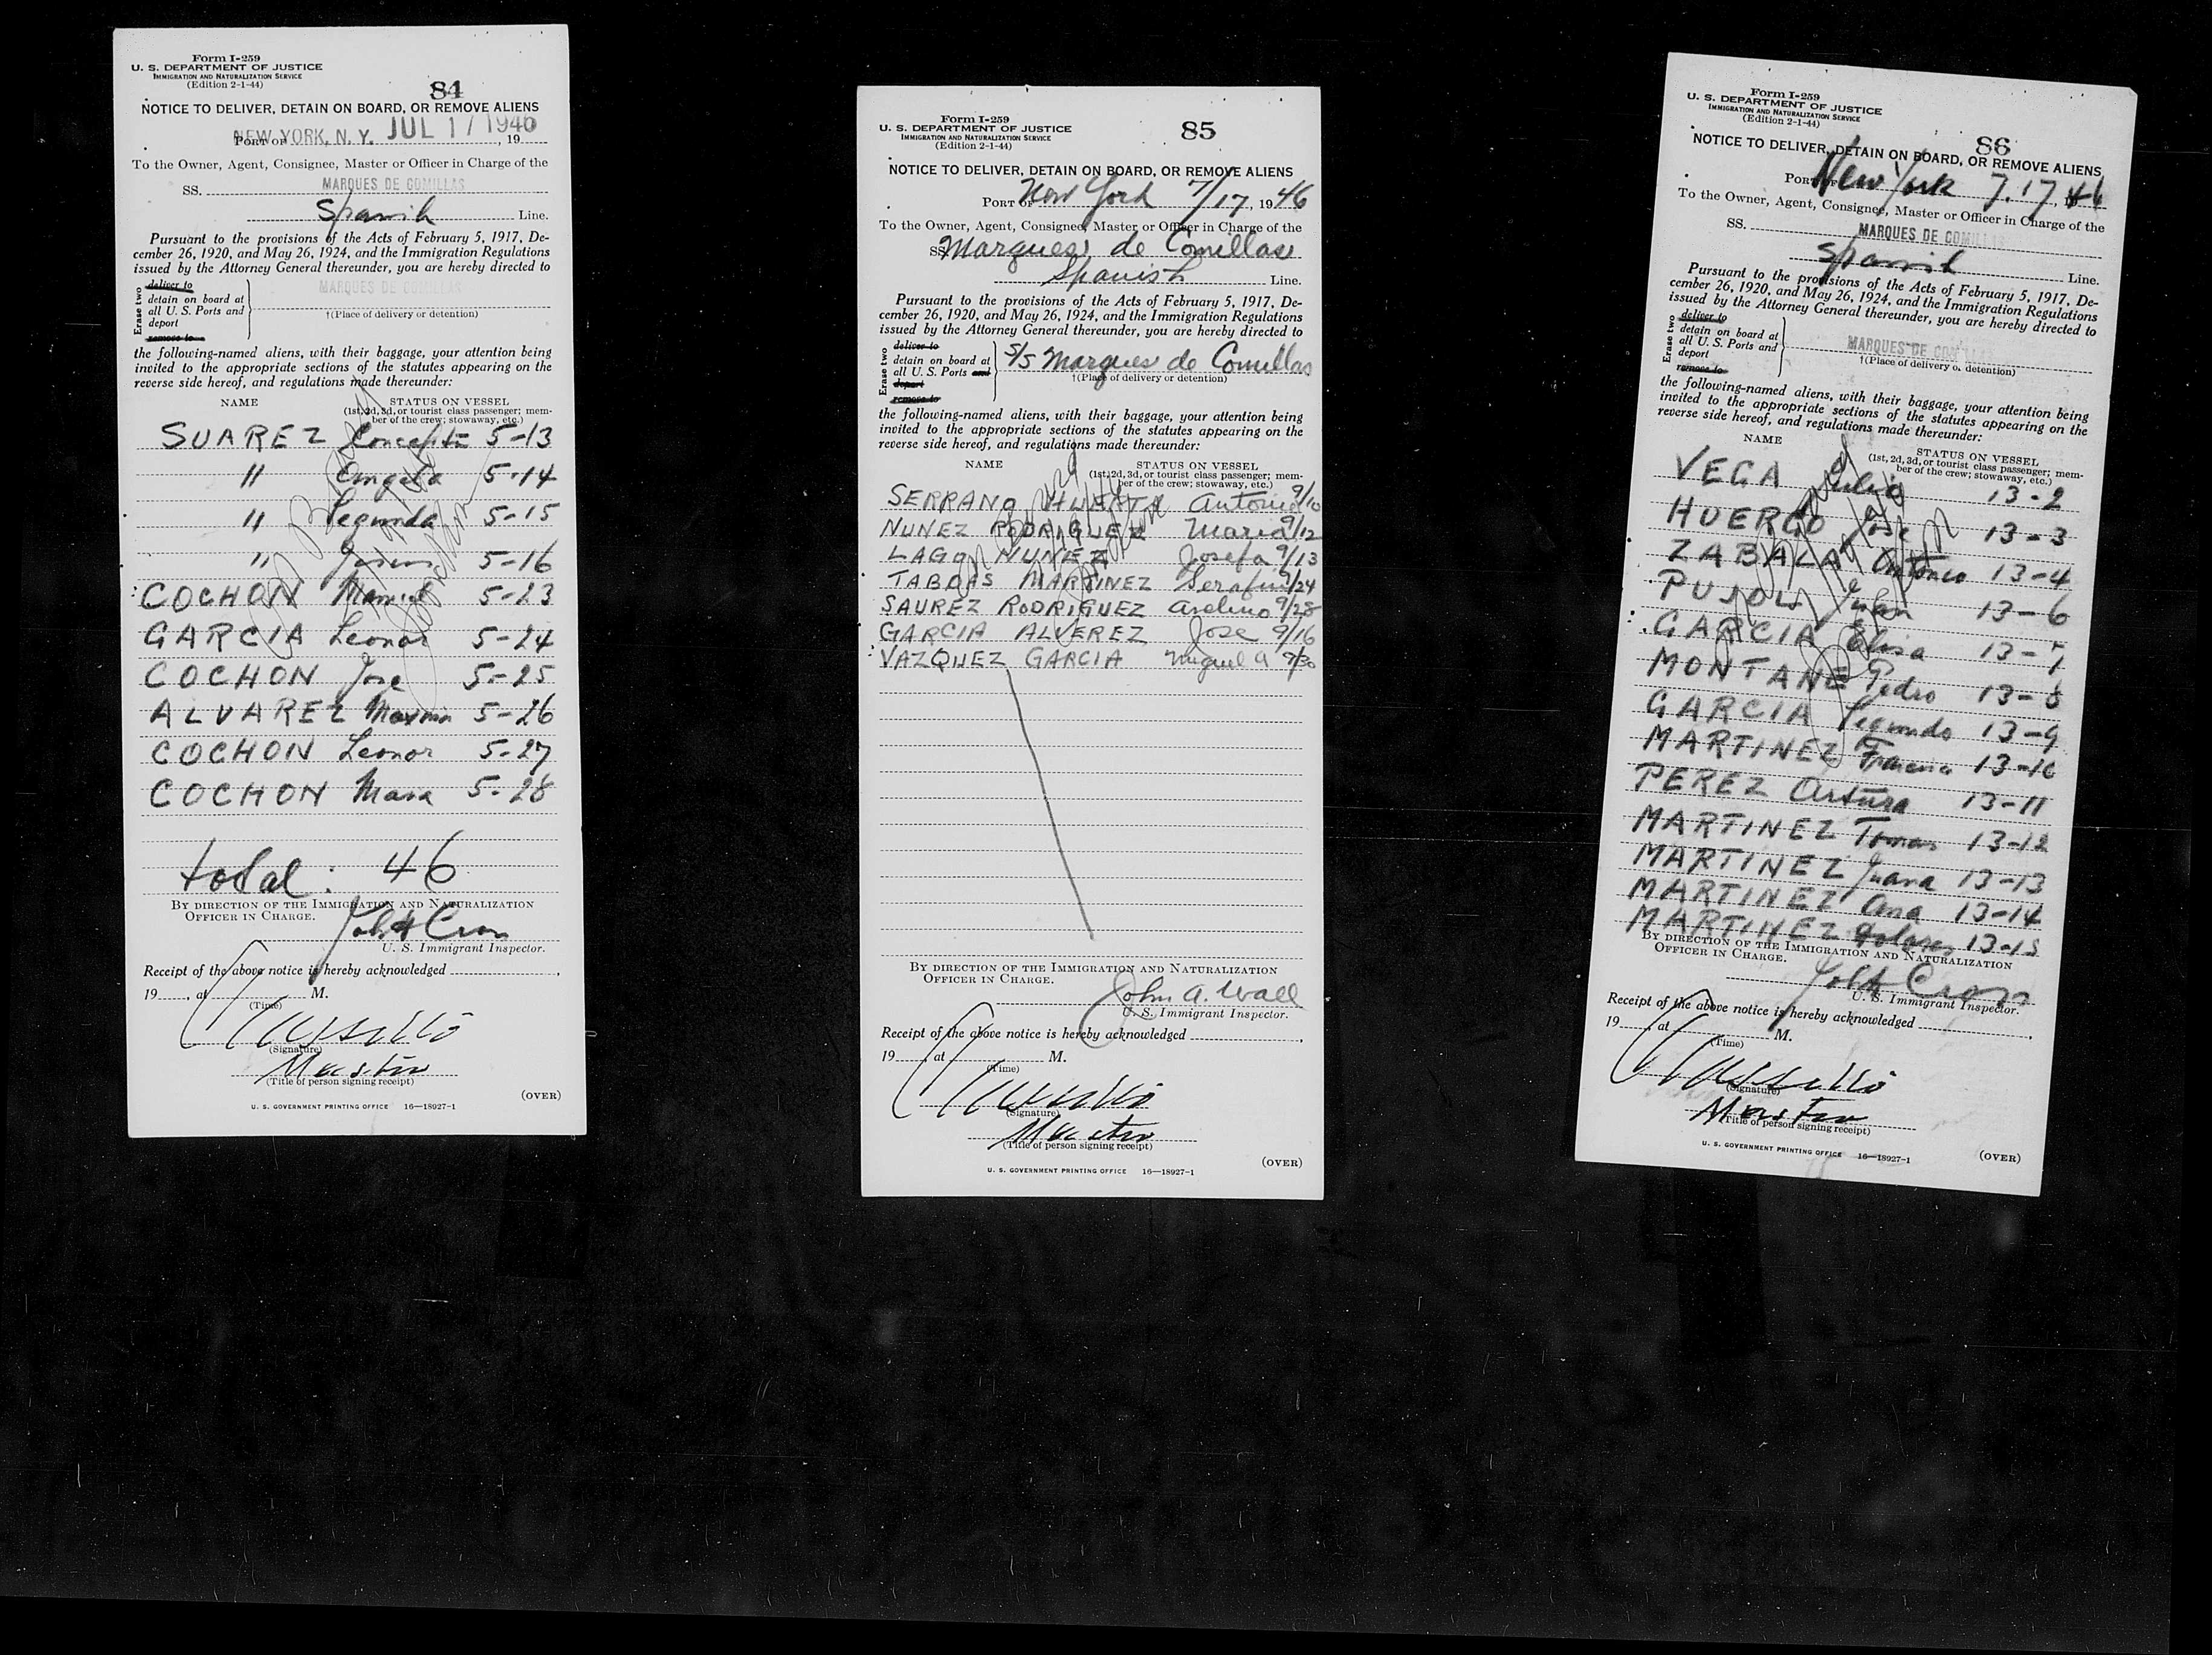 Form I-259
U. S. DEPARTMENT OF JUSTICE
IMMIGRATION AND NATURALIZATION SERVICE
(Edition 2-1-44)
84
NOTICE TO DELIVER, DETAIN ON BOARD, OR REMOVE ALIENS
PORT OF NEW YORK, N. Y. JUL 17 1946, 19
To the Owner, Agent, Consignee, Master or Officer in Charge of the
SS. MARQUES DE COMILLAS
Spanish Line.
Pursuant to the provisions of the Acts of February 5, 1917, De-
cember 26, 1920, and May 26, 1924, and the Immigration Regulations
issued by the Attorney General thereunder, you are hereby directed to
Erase two
deliver to
detain on board at
all U. S. Ports and
deport
remove to
MARQUES DE COMILLAS
†(Place of delivery or detention)
the following-named aliens, with their baggage, your attention being
invited to the appropriate sections of the statutes appearing on the
reverse side hereof, and regulations made thereunder:
NAME STATUS ON VESSEL
(1st, 2d, 3d, or tourist class passenger; mem-
ber of the crew; stowaway, etc.)
SUAREZ 5-13
" Angela 5-14
" Segunda 5-15
" 5-16
COCHON Manuel 5-23
GARCIA Leonor 5-24
COCHON Jose 5-25
ALVAREZ 5-26
COCHON Leonor 5-27
COCHON 5-28
total: 46
BY DIRECTION OF THE IMMIGRATION AND NATURALIZATION
OFFICER IN CHARGE.
U. S. Immigrant Inspector.
Receipt of the above notice is hereby acknowledged ,
19 , at M.
(Time)
(Signature)
Master
(Title of person signing receipt)
(OVER)
U. S. GOVERNMENT PRINTING OFFICE 16—18927-1
Form I-259
U. S. DEPARTMENT OF JUSTICE
IMMIGRATION AND NATURALIZATION SERVICE
(Edition 2-1-44)
85
NOTICE TO DELIVER, DETAIN ON BOARD, OR REMOVE ALIENS
PORT OF New York 7/17, 1946
To the Owner, Agent, Consignee, Master or Officer in Charge of the
SS Marques de Comillas
Spanish Line.
Pursuant to the provisions of the Acts of February 5, 1917, De-
cember 26, 1920, and May 26, 1924, and the Immigration Regulations
issued by the Attorney General thereunder, you are hereby directed to
Erase two
deliver to
detain on board at
all U. S. Ports and
deport
remove to
S/S Marques de Comillas
†(Place of delivery or detention)
the following-named aliens, with their baggage, your attention being
invited to the appropriate sections of the statutes appearing on the
reverse side hereof, and regulations made thereunder:
NAME STATUS ON VESSEL
(1st, 2d, 3d, or tourist class passenger; mem-
ber of the crew; stowaway, etc.)
SERRANO 9/10
NUNEZ RODRIGUEZ Maria 9/12
LAGO NUNEZ Josefa 9/13
TABOAS MARTINEZ Serafin 9/24
SAUREZ RODRIGUEZ Avelino 9/28
GARCIA ALVEREZ Jose 9/16
VAZQUEZ GARCIA Miguel A 9/30
BY DIRECTION OF THE IMMIGRATION AND NATURALIZATION
OFFICER IN CHARGE.
John A. Wall
U. S. Immigrant Inspector.
Receipt of the above notice is hereby acknowledged ,
19 , at M.
(Time)
(Signature)
Master
(Title of person signing receipt)
(OVER)
U. S. GOVERNMENT PRINTING OFFICE 16—18927-1
Form I-259
U. S. DEPARTMENT OF JUSTICE
IMMIGRATION AND NATURALIZATION SERVICE
(Edition 2-1-44)
86
NOTICE TO DELIVER, DETAIN ON BOARD, OR REMOVE ALIENS
PORT OF New York 7.17, 1946
To the Owner, Agent, Consignee, Master or Officer in Charge of the
SS. MARQUES DE COMILLAS
Spanish Line.
Pursuant to the provisions of the Acts of February 5, 1917, De-
cember 26, 1920, and May 26, 1924, and the Immigration Regulations
issued by the Attorney General thereunder, you are hereby directed to
Erase two
deliver to
detain on board at
all U. S. Ports and
deport
remove to
MARQUES DE COMILLAS
†(Place of delivery or detention)
the following-named aliens, with their baggage, your attention being
invited to the appropriate sections of the statutes appearing on the
reverse side hereof, and regulations made thereunder:
NAME STATUS ON VESSEL
(1st, 2d, 3d, or tourist class passenger; mem-
ber of the crew; stowaway, etc.)
VEGA Julio 13-2
HUERGO Jose 13-3
ZABALA Antonio 13-4
PUJOL Juan 13-6
GARCIA Elisa 13-7
MONTANE Pedro 13-8
GARCIA Segundo 13-9
MARTINEZ 13-10
PEREZ Arturo 13-11
MARTINEZ Tomas 13-12
MARTINEZ Juana 13-13
MARTINEZ Ana 13-14
MARTINEZ Dolores 13-15
BY DIRECTION OF THE IMMIGRATION AND NATURALIZATION
OFFICER IN CHARGE.
U. S. Immigrant Inspector.
Receipt of the above notice is hereby acknowledged ,
19 , at M.
(Time)
(Signature)
Master
(Title of person signing receipt)
(OVER)
U. S. GOVERNMENT PRINTING OFFICE 16—18927-1